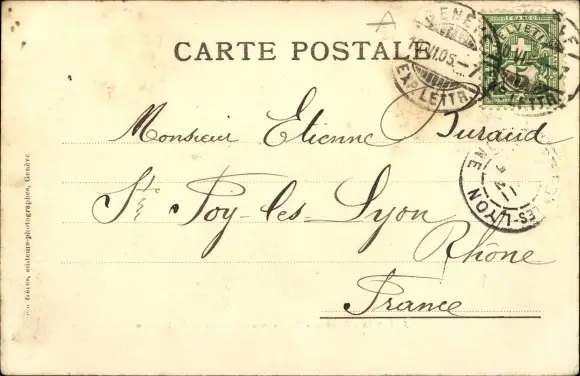 CARTE POSTALE
GENÈVE
10.VI.05.–7
EXP. LETTR.
HELVETIA
FRANCO
5
LYON
Monsieur Etienne Turaud
Ste Foy-les-Lyon
Rhône
France
frères, éditeurs-photographes, Genève